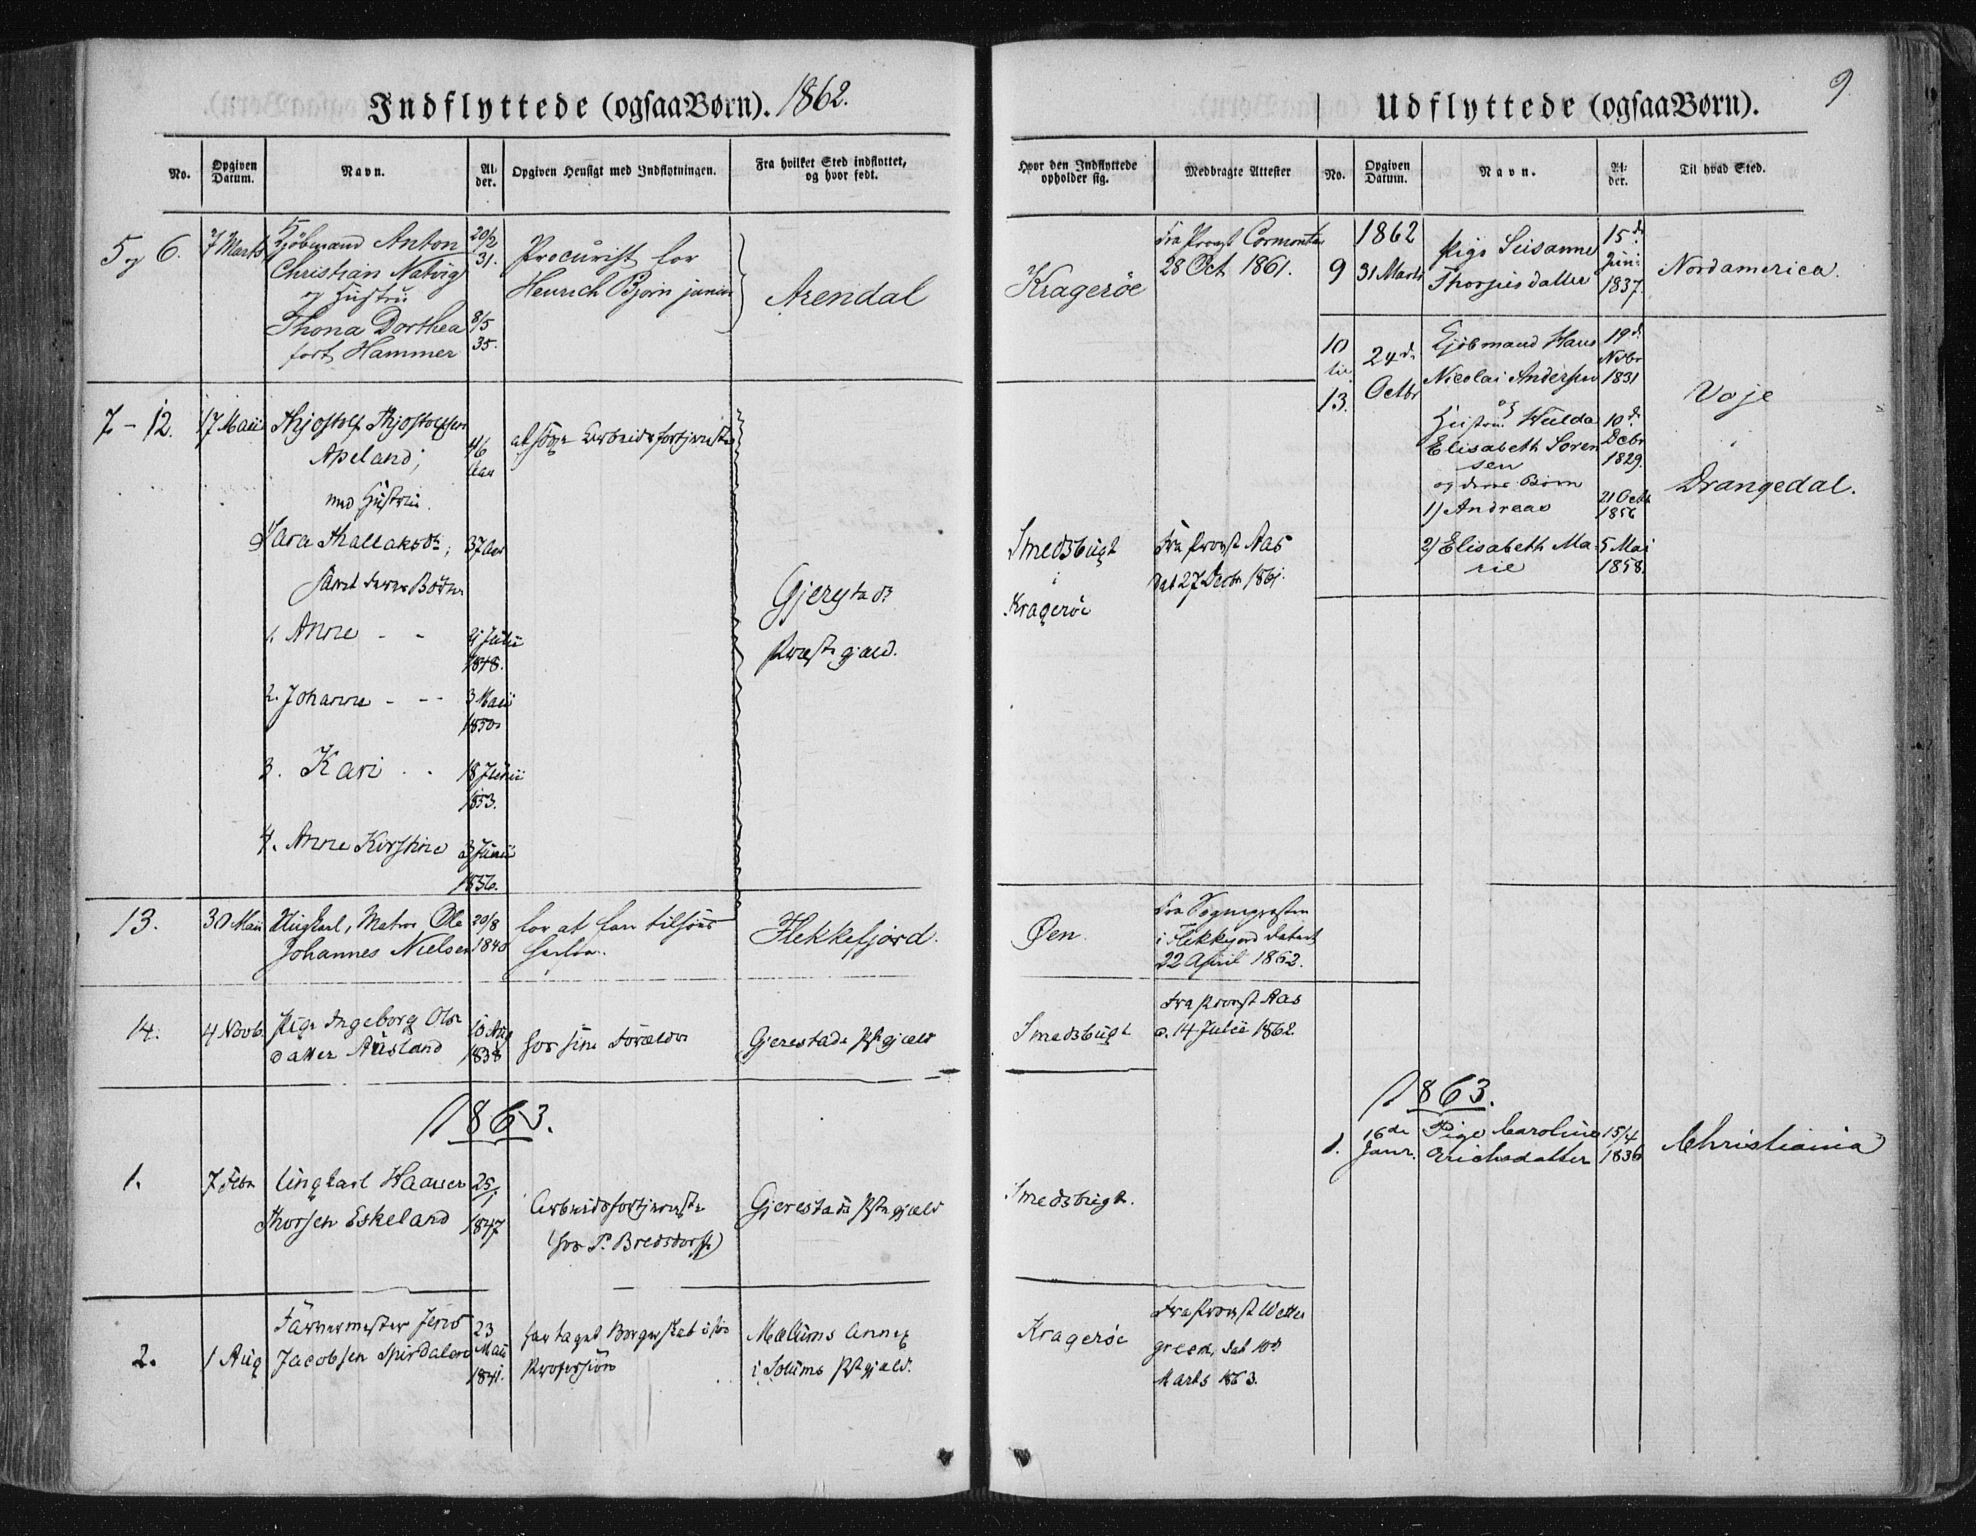 Indflyttede (ogsaa Børn). 1862.
No.
Opgiven Datum.
Navn.
Alder.
Opgiven Hensigt med Indflytningen.
Fra hvilket Sted indflyttet,
og hvor født.
5 og 6.
7 Marts
Kjøbmand Anton
Christian Natvig
og Hustru
Thona Dorthea
født Hammer
20/2
31.
8/5
35.
Procurist for
Henrich Bjørn junior
Arendal
7 - 12.
17 Maii
Thjostolf Thjostolfsen
Apeland;
med Hustru
Sara Thallaksdr;
samt deres Børn
1. Anne - -
2. Johanne - - -
3. Kari - -
4. Anne Kirstine
46
Aar
37 Aar
9 Julii
1848.
3 Maii
1850
18 Junii
1853.
3 Junii
1856.
at søge Arbeidsfortjeneste
Gjerestads
Præstegjæld.
13.
30 Maii
Ungkarl, Matros Ole
Johannes Nielsen
20/8
1840
for at fare tilsøes
herfra.
Flekkefjord.
14.
4 Novb.
Pige Ingeborg Ols
datter Ausland
10 Aug
1838
hos sine Forældre
Gjerestads Pstgjæld
1863.
1.
7 Febr
Ungkarl Haaver
Thorsen Eskeland
25/1
1847
Arbeidsfortjeneste
(hos P. Bredsdorff)
Gjerestads Pstgjæld
2.
1 Aug
Farvermester Jens
Jacobsen Spirdalen
23
Maii
1841.
har taget Borgerskab i sin
Profession
Mælums Annex
i Solums Pstgjæld.
9.
Udflyttede (ogsaa Børn).
Hvor den Indflyttede
opholder sig.
Medbragte Attester
No.
Opgiven
Datum.
Navn.
Alder.
Til hvad Sted.
Kragerøe
Fra Provst Cormontan
28 Oct 1861.
Smedsbugt
i
Kragerøe
Fra Provst Aas
dat 27 Decbr 1861.
Øen.
Fra Sognepresten
i Flekkefjord datert
22 April 1862.
Smedsbugt
Fra Provst Aas
d. 14 Julii 1862.
Smedsbugt.
Kragerøe
Fra Provst Wetter
green, dat 10d
Marts 1863.
1862
9
31 Marts
Pige Susanne
Thorjusdatter
15d
Juni
1837.
Nordamerica.
10
til
13.
24de
Octbr
Kjøbmand Hans
Nicolai Andersen
og
Hustru Hulda
Elisabeth Soren
sen
og deres Børn
1) Andreas
2) Elisabeth Ma
rie
19d
Nvbr
1831
10d
Decbr
1829.
21 Octb
1856
5 Mai
1858.
Voje
i
Drangedal.
1863.
1.
16de
Janr.
Pige Caroline
Erichsdatter
15/4
1836
Christiania